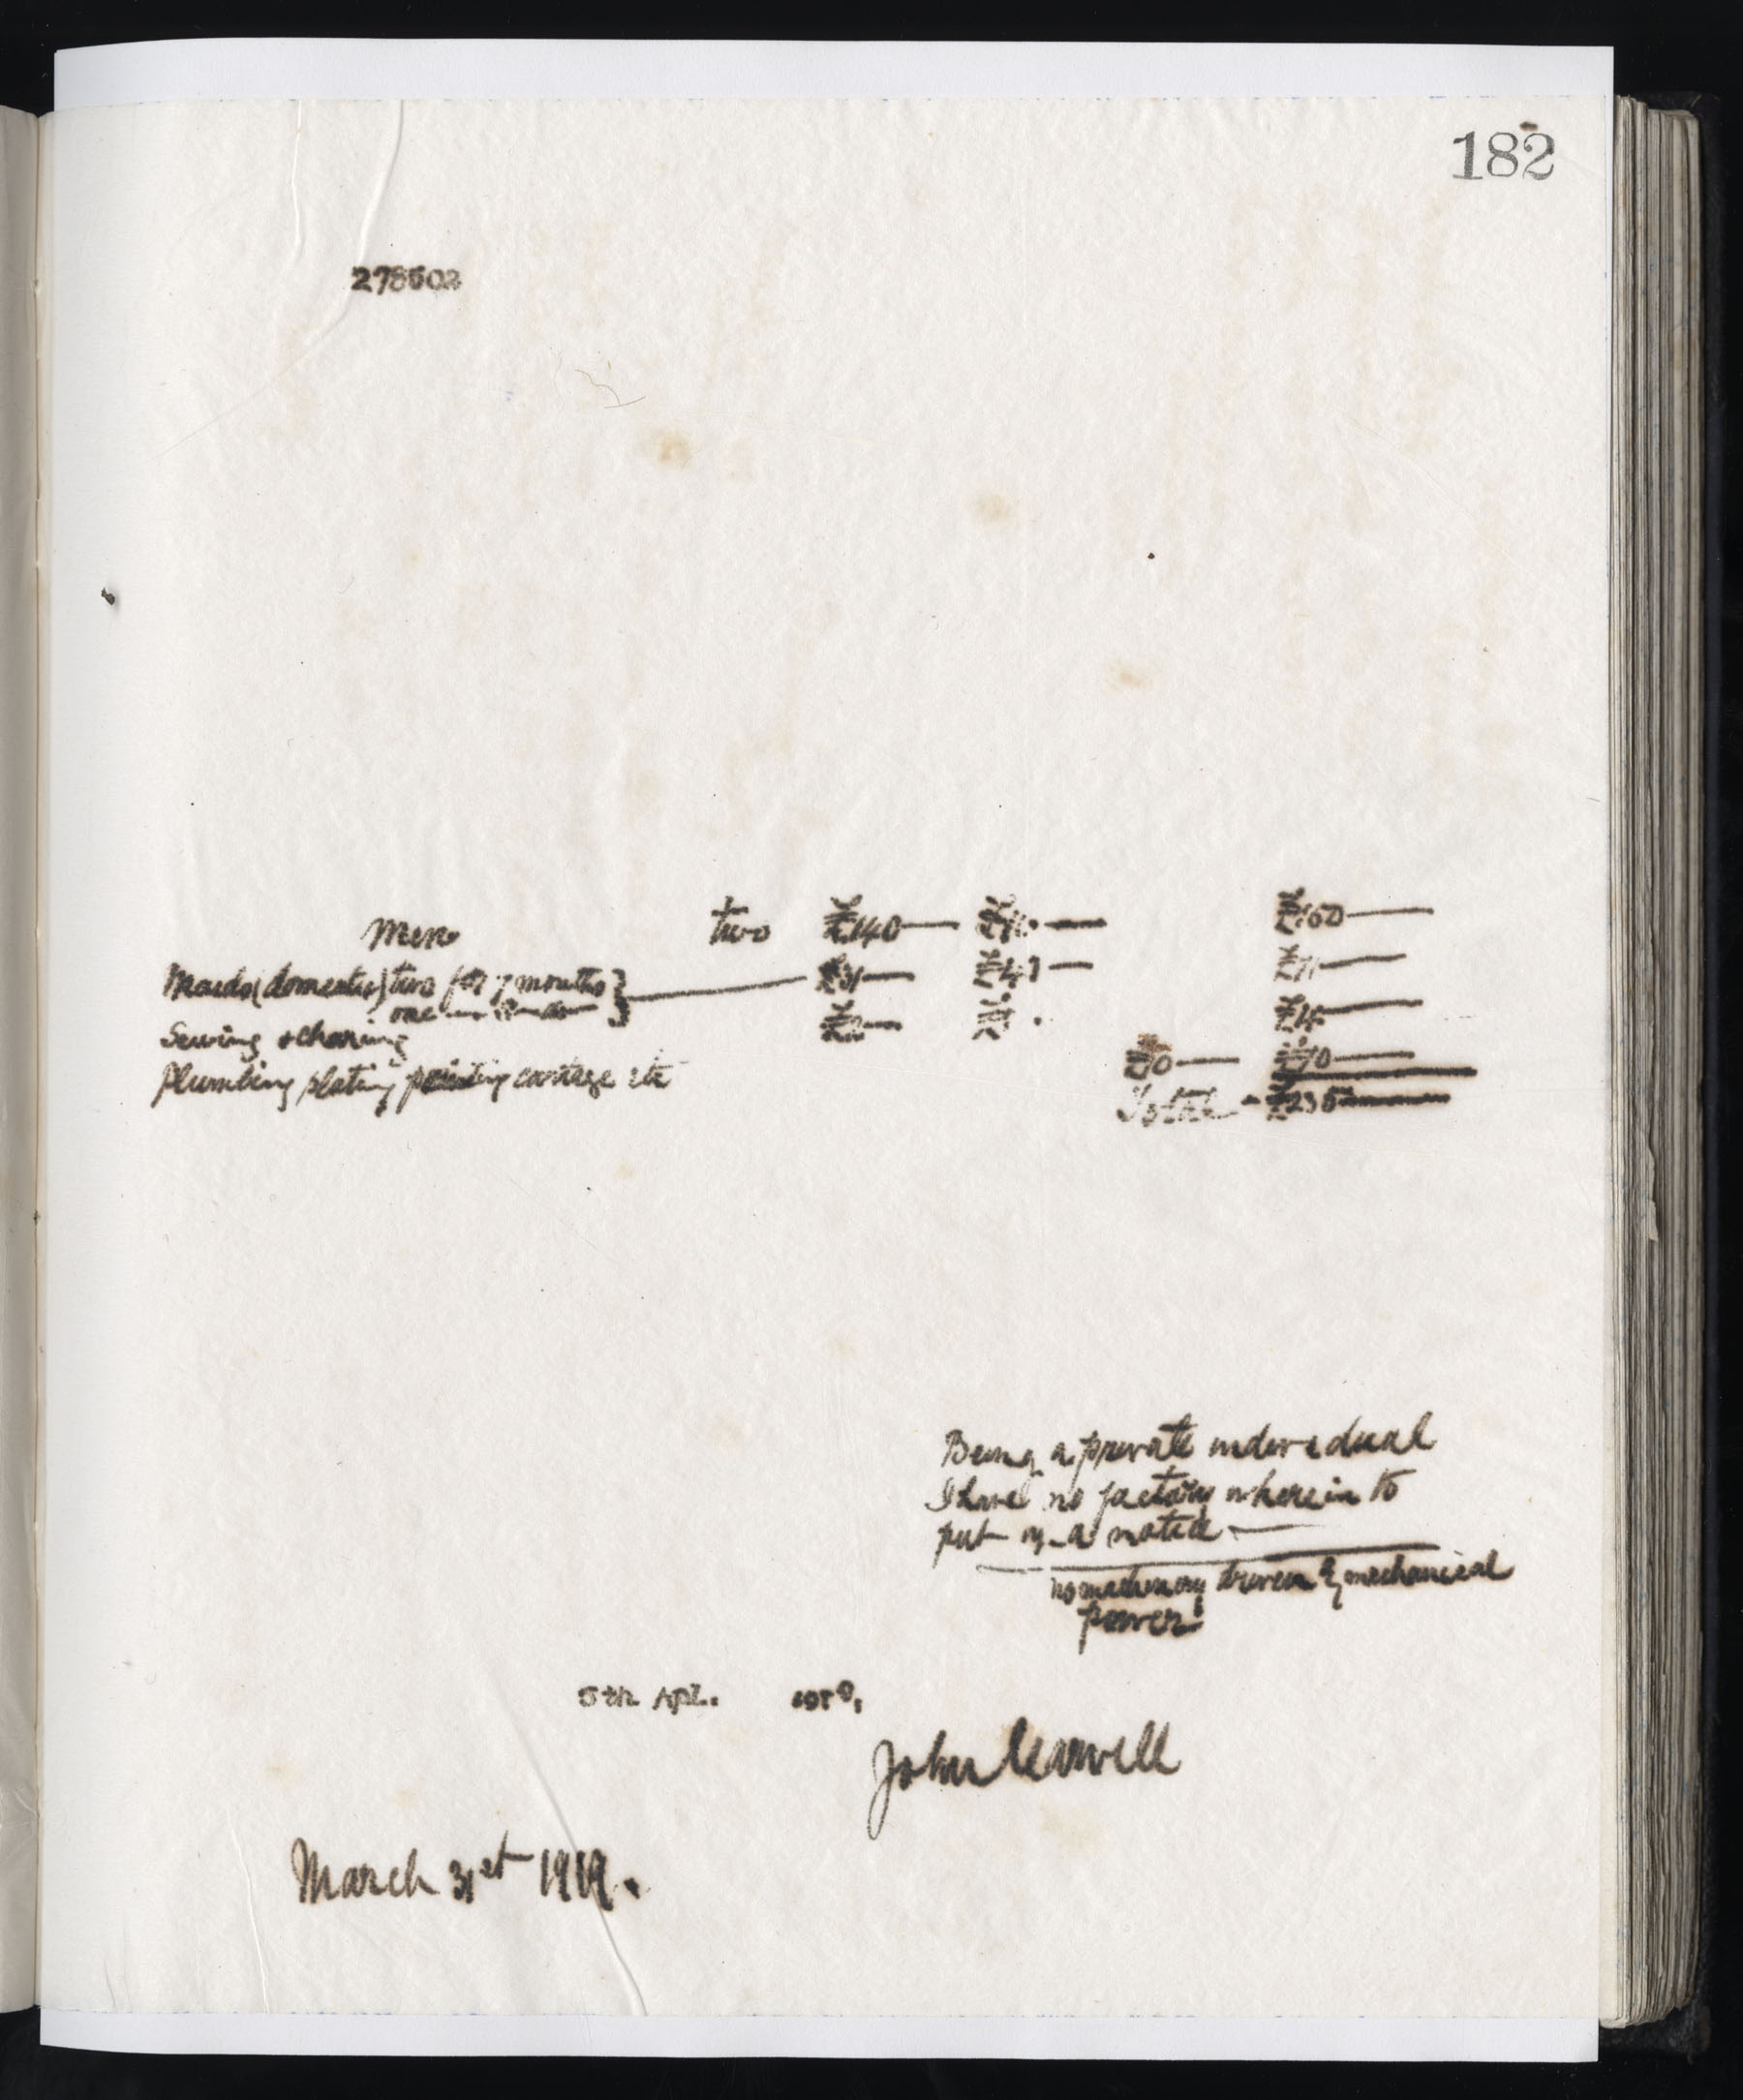 182
278502
Men two £140— £160—
Maids (domestic) two for 7 months } £31— £41—
one
Sewing & charing
Plumbing slating painting cartage etc £10— £10—
Total - £235
Being a private individual
I have no factory wherein to
put up a notice —
no machinery driven by mechanical
power
5th Apl.
John
March 31st 1919.